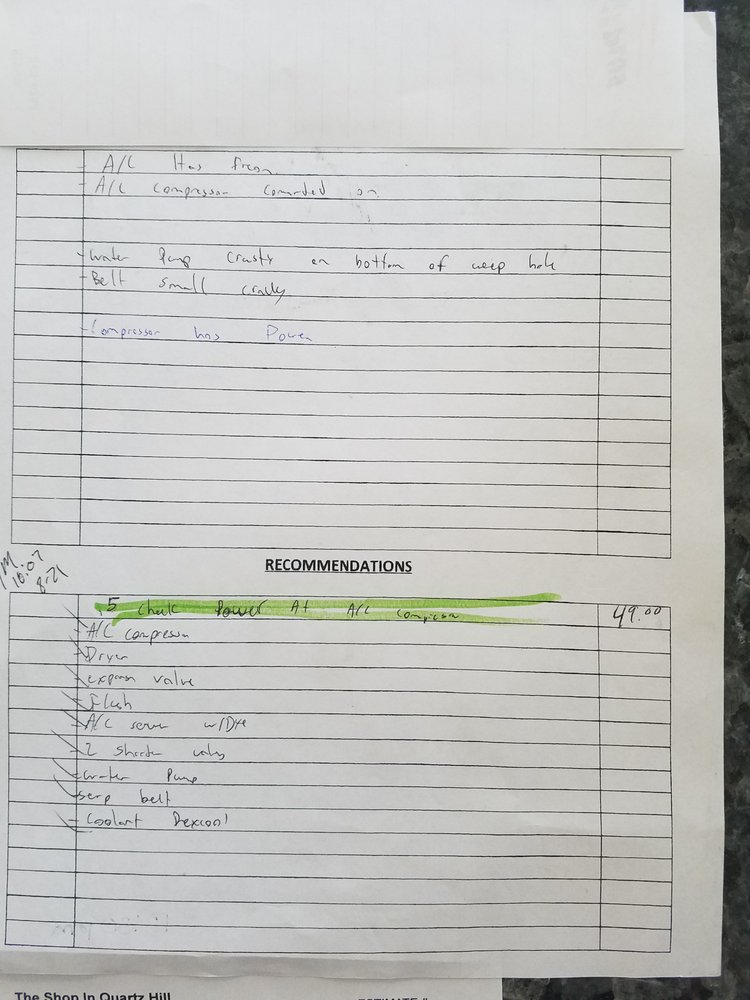 A/C Has freon
A/C compressor comanded on
- Water Pump Crusty on bottom of weep hole
- Belt small cracks
- Compressor has Power
RECOMMENDATIONS
10:07
8-21
.5 Check Power At A/C compressor 49.00
- A/C compressor
- Dryer
- expansion valve
- Flush
- A/C service w/Dye
- 2 shrader valves
- water Pump
- serp belt
- Coolant Dexcool
The Shop In Quartz Hill
ESTIMATE #